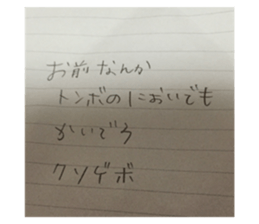 お前なんか
トンボのにおいでも
かいでろ
クソゲボ